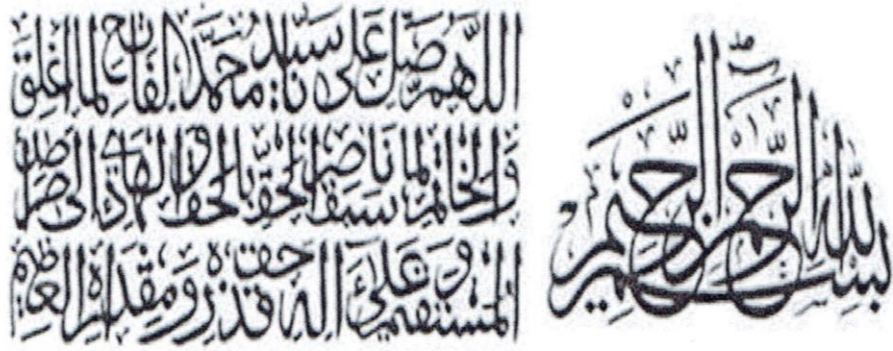 بسم الله الرحمن الرحيم
اللهم صل على سيدنا محمد الفاتح لما اغلق
والخاتم لما سبق ناصر الحق بالحق والهادي الى صراطك
المستقيم وعلى اله حق قدره ومقداره العظيم